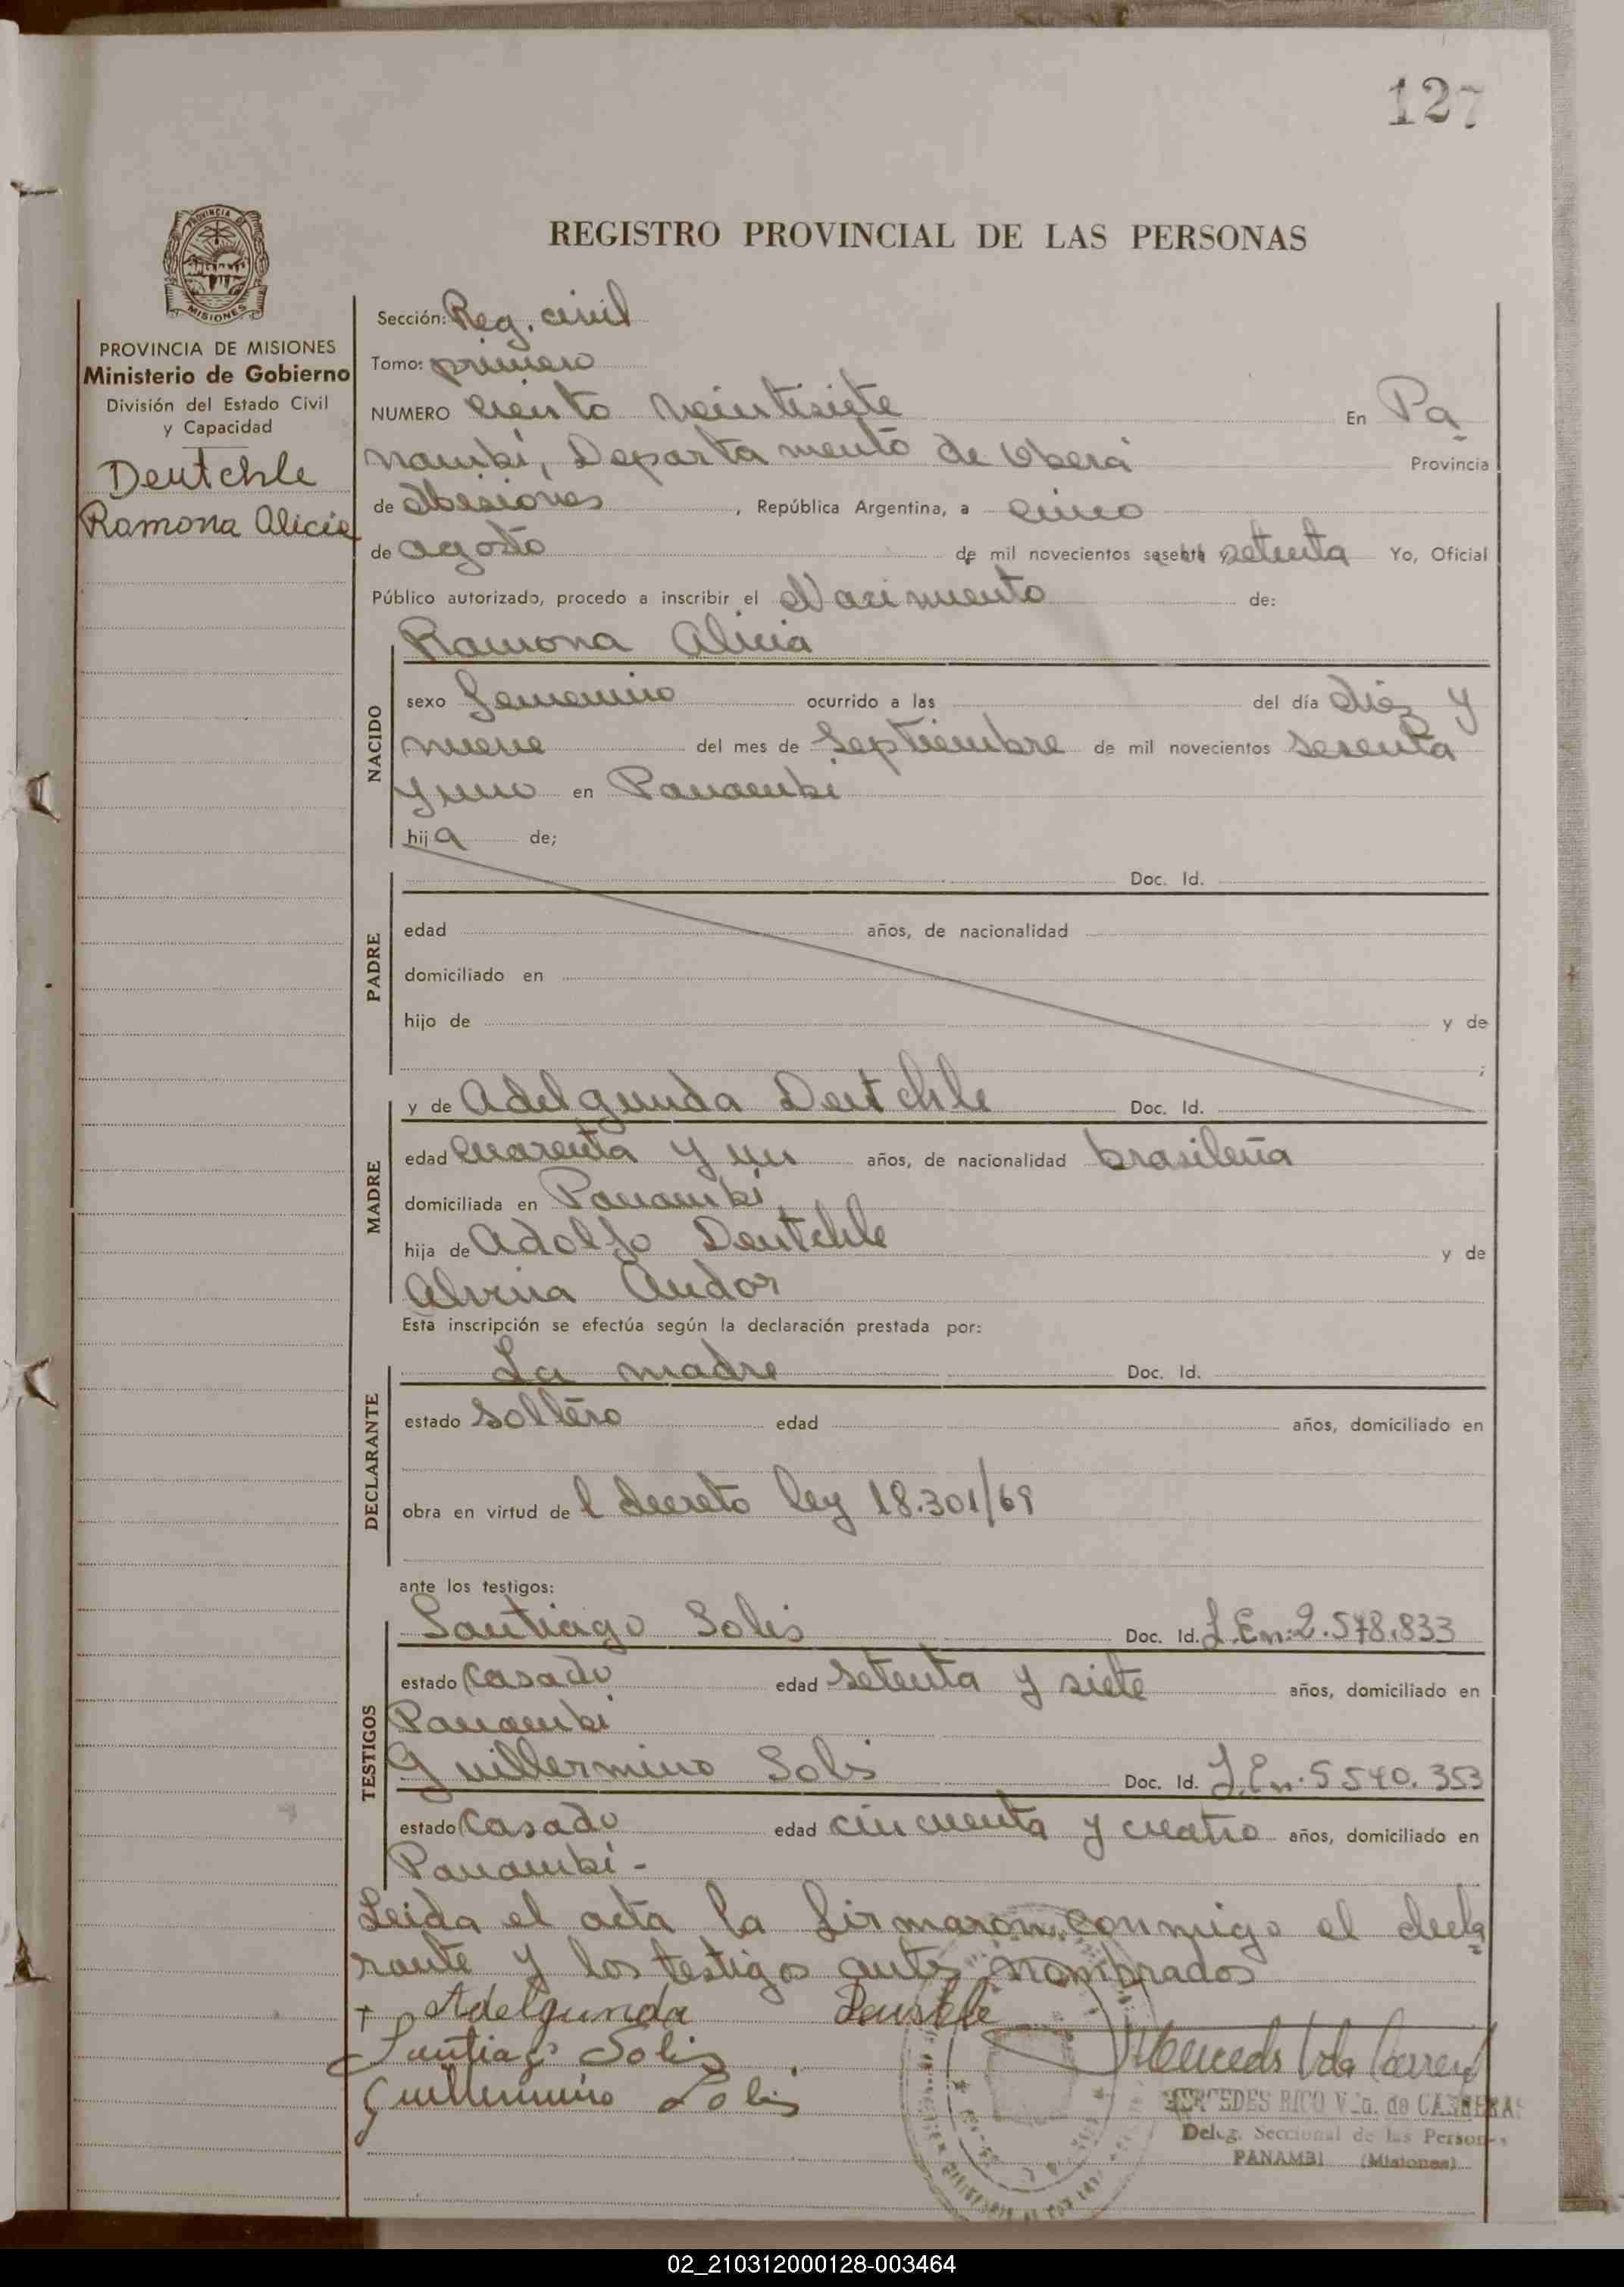 127
REGISTRO PROVINCIAL DE LAS PERSONAS
PROVINCIA DE MISIONES
Ministerio de Gobierno
División del Estado Civil
y Capacidad
Deutchle
Ramona Alicia
Sección: Reg. civil
Tomo: primero
NUMERO ciento veintisiete En Pa
nambí, Departamento de Oberá Provincia
de Misiones, República Argentina, a cinco
de agosto de mil novecientos sesenta y setenta Yo, Oficial
Público autorizado, procedo a inscribir el Nacimiento de:
Ramona Alicia
NACIDO
sexo femenino ocurrido a las del día diez y
nueve del mes de Septiembre de mil novecientos sesenta
y uno en Panambí
hija de;
PADRE
Doc. Id.
edad años, de nacionalidad
domiciliado en
hijo de y de
;
MADRE
y de Adelgunda Deutchle Doc. Id.
edad cuarenta y un años, de nacionalidad brasileña
domiciliada en Panambí
hija de Adolfo Deutchle y de
Alvina Andor
Esta inscripción se efectúa según la declaración prestada por:
DECLARANTE
La madre Doc. Id.
estado soltero edad años, domiciliado en
obra en virtud del decreto ley 18.301/69
ante los testigos:
TESTIGOS
Santiago Solis Doc. Id. L.En: 2.578.833
estado casado edad setenta y siete años, domiciliado en
Panambí
Guillermino Solis Doc. Id. L.En. 5540.353
estado casado edad cincuenta y cuatro años, domiciliado en
Panambí-
Leida el acta la firmaron conmigo el decla
rante y los testigos antes nombrados
+ Adelgunda Deutchle
Santiago Solis
Guillermino Solis
MERCEDES RICO Vda. de CARRERAS
Deleg. Seccional de las Personas
PANAMBI (Misiones)
02_210312000128-003464